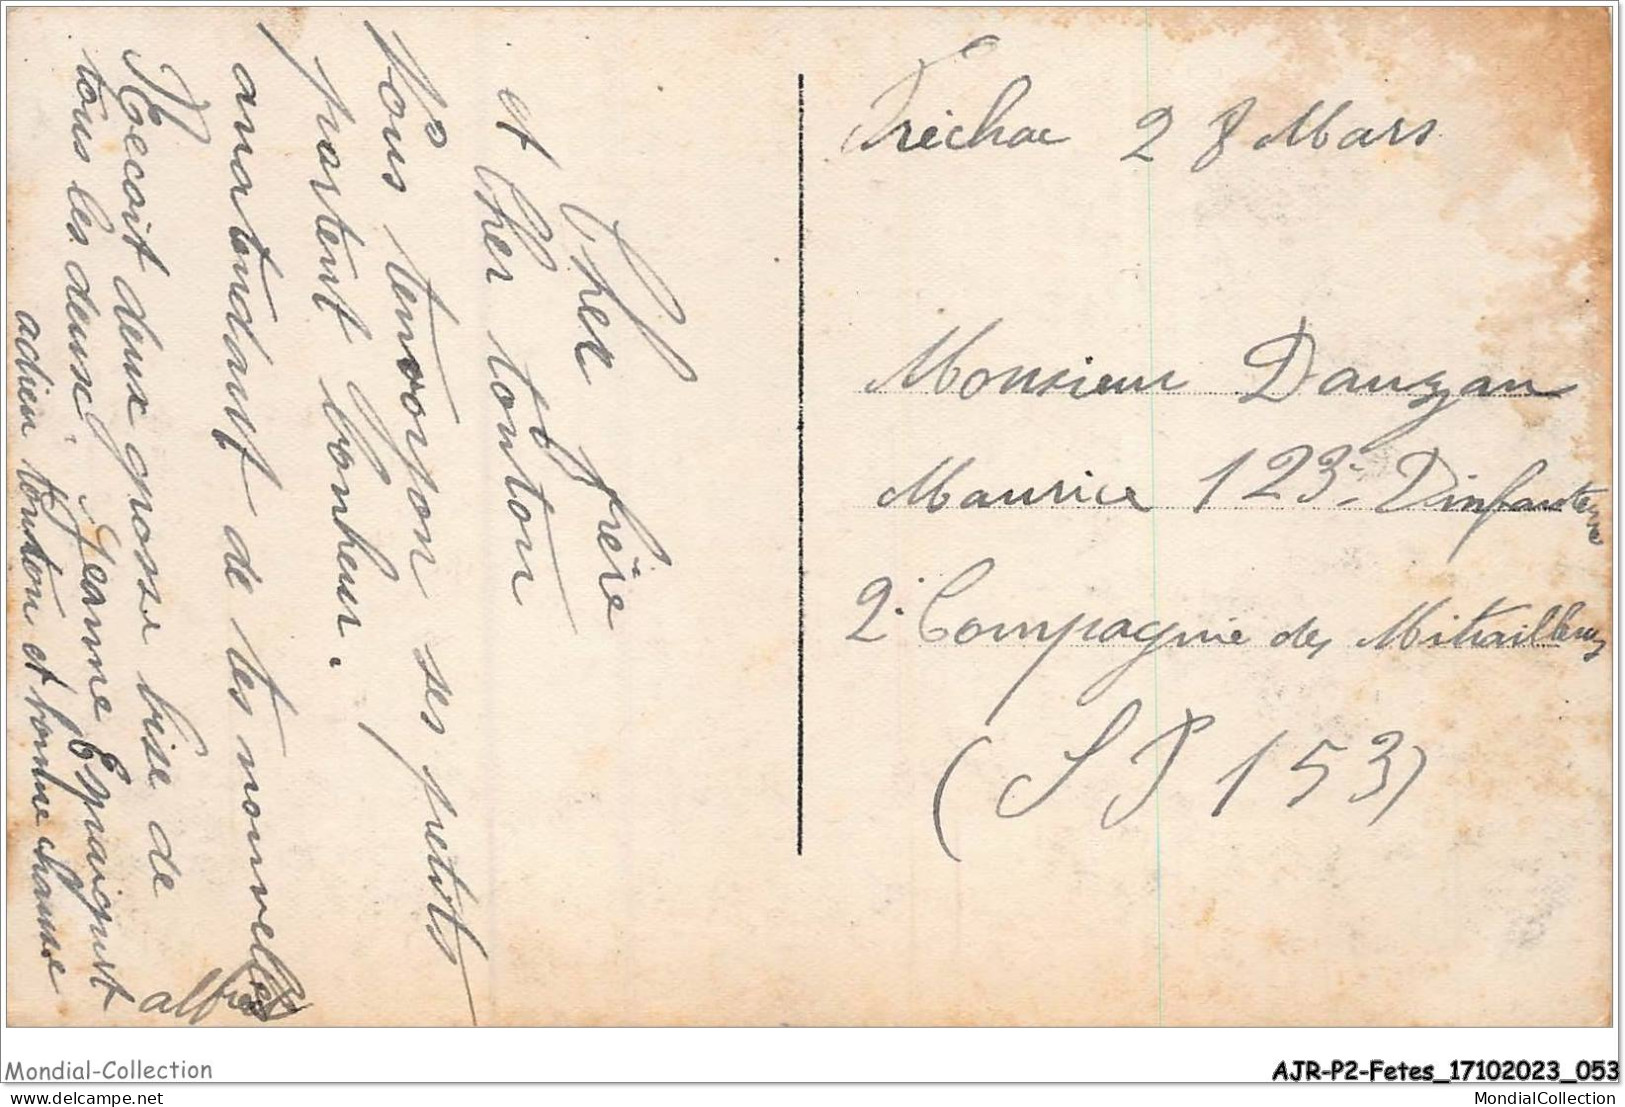 Cher frère
et Cher tonton
Nous temvoyon ses petits
portent bonheur.
anatendant de tes nouvelles
Recoit deux grosse bise de
tous les deuse. Jeanne
adieu tonton et bonne chanse
alfred
Fréchac 28 Mars
Monsieur Dauzan
Maurice 123e Dinfanterie
2e Compagnie des Mitrailleuses
(SP 153)
Mondial-Collection
AJR-P2-Fetes_17102023_053
delcampe.net
MondialCollection